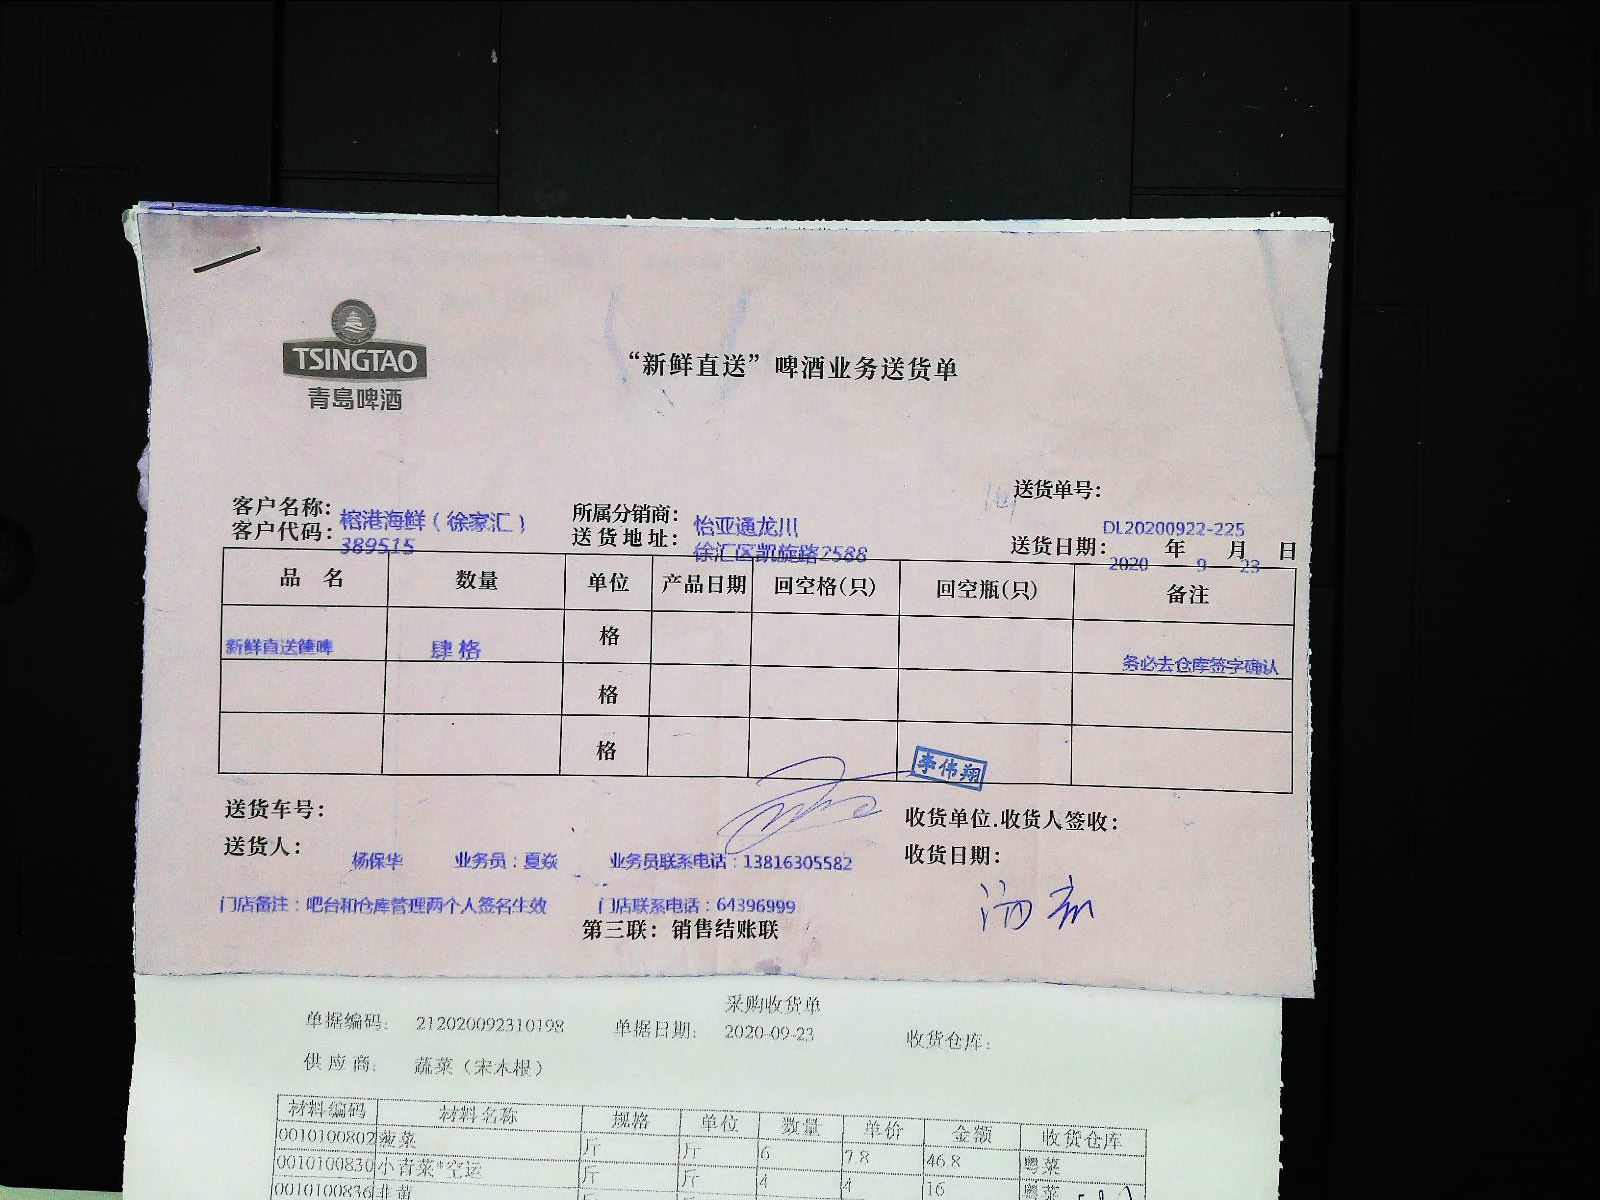 TSINGTAO
青島啤酒
“新鲜直送”啤酒业务送货单
送货单号：
DL20200922-225
客户名称：榕港海鲜（徐家汇）
所属分销商：怡亚通龙川
客户代码：389515
送货地址：徐汇区凯旋路2588
送货日期：2020年9月23日
品名 数量 单位 产品日期 回空格(只) 回空瓶(只) 备注
新鲜直送箩啤 肆格 格 务必去仓库签字确认
格
格
李伟翔
送货车号：
收货单位.收货人签收：
送货人：杨保华 业务员：夏焱 业务员联系电话：13816305582
收货日期：
门店备注：吧台和仓库管理两个人签名生效 门店联系电话：64396999
第三联：销售结账联
采购收货单
单据编码： 212020092310198 单据日期： 2020-09-23 收货仓库：
供应商： 蔬菜（宋木根）
材料编码 材料名称 规格 单位 数量 单价 金额 收货仓库
0010100802 菠菜 斤 斤 6 7.8 46.8 粤菜
0010100830 小青菜*空运 斤 斤 4 4 16 粤菜
0010100836 韭黄